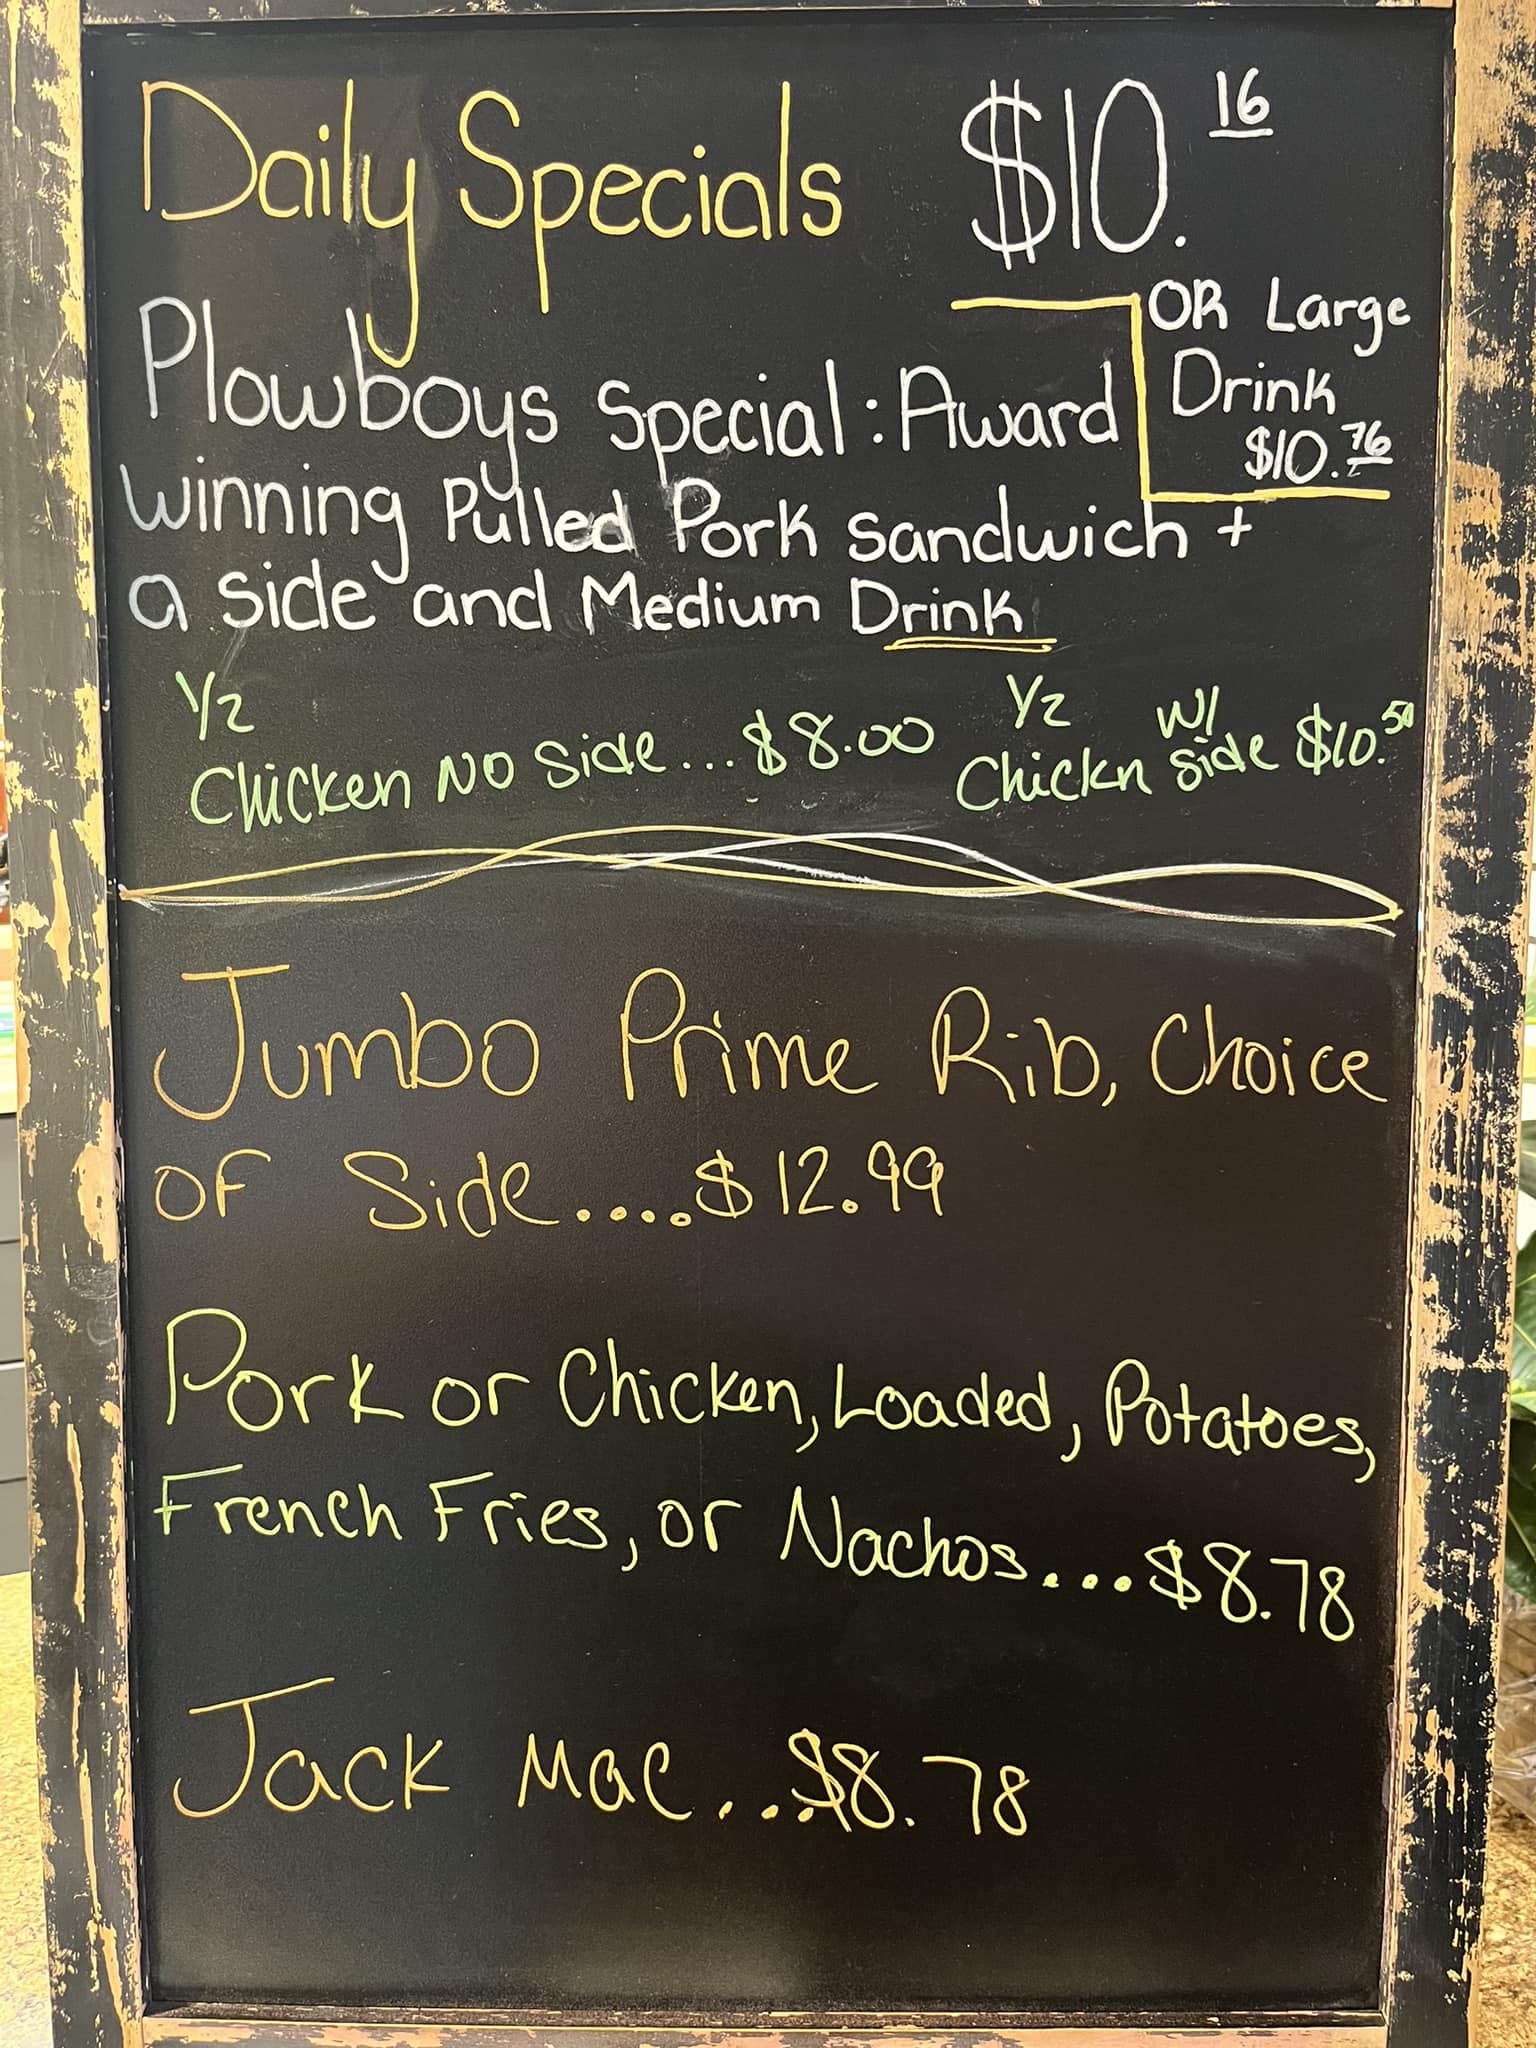 Daily Specials $10.16
OR Large
Drink
$10.76
Plowboys Special: Award
winning Pulled Pork Sandwich +
a side and Medium Drink
1/2
Chicken NO Side...$8.00
1/2 W/
Chickn Side $10.50
Jumbo Prime Rib, Choice
OF Side....$12.99
Pork or Chicken, Loaded, Potatoes,
French Fries, or Nachos...$8.78
Jack Mac...$8.78